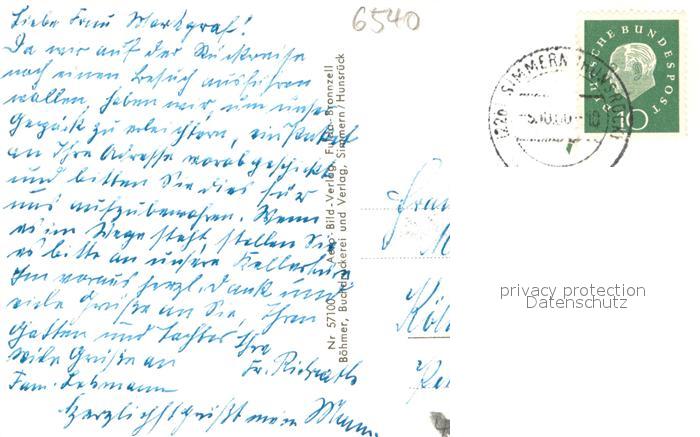 6540
Liebe Frau Markgraf!
Da wir auf der Rückreise
noch einen Besuch ausführen
wollen, haben wir, um unser
Gepäck zu erleichtern, ein Paket
an Ihre Adresse vorab geschickt
und bitten Sie dies für
uns aufzubewahren. Wenn
es im Wege steht stellen Sie
es bitte an unsere Kellertür
Im voraus herzl. Dank und
viele Grüße an Sie, Ihren
Gatten und Tochter Ihre
Viele Grüße an Fr. Richrath
Fam. Lehmann
Herzlichst grüßt mein Mann
Nr 57100 Aero-Bild-Verlag, Fulda-Bronnzell
Böhmer, Buchdruckerei und Verlag, Simmern/Hunsrück
DEUTSCHE BUNDESPOST
10
SIMMERN (HUNSRÜCK)
Frau
Köl
privacy protection
Datenschutz